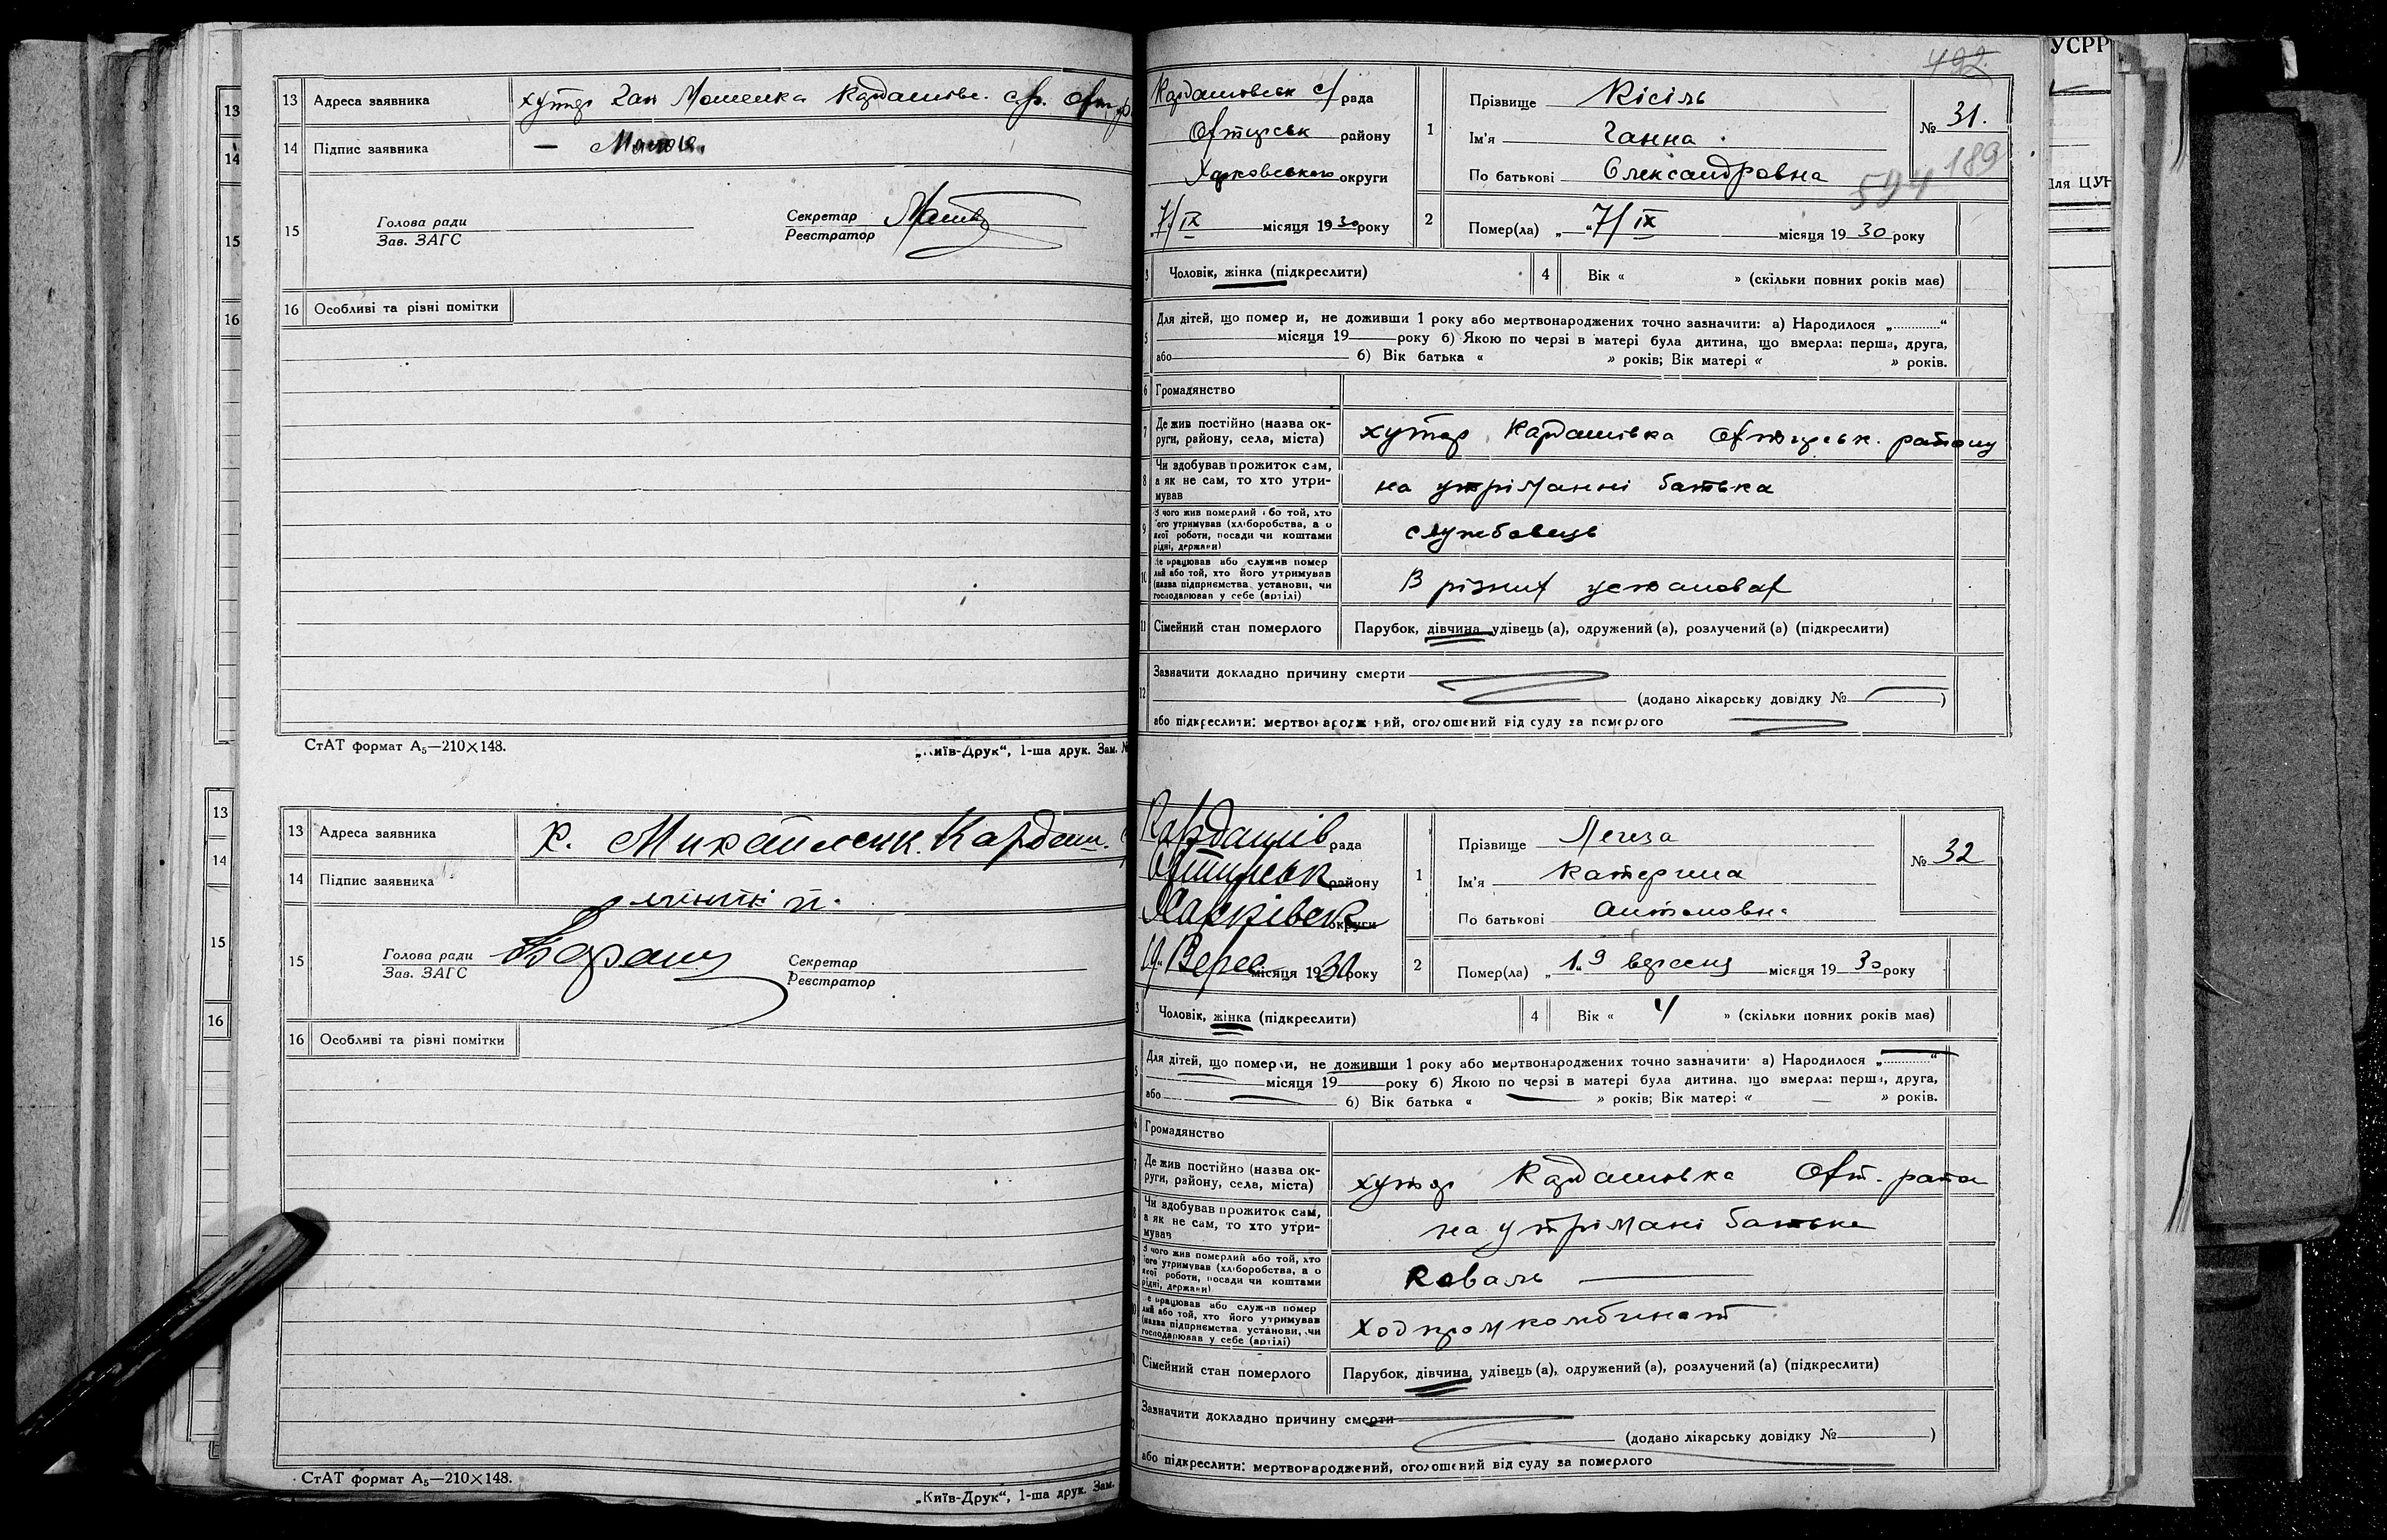 13 Адреса заявника хутор Кардашівс. с/р.
14 Підпис заявника —
15 Голова ради
Зав. ЗАГС
Секретар
Реєстратор
16 Особливі та різні помітки
СтАТ формат А₅—210×148.
„Київ-Друк“, 1-ша друк. Зам. №
13 Адреса заявника х. Кардаш.
14 Підпис заявника
15 Голова ради
Зав. ЗАГС
Секретар
Реєстратор
16 Особливі та різні помітки
СтАТ формат А₅—210×148.
„Київ-Друк“, 1-ша друк. Зам.
492
Кардашовськ с/рада
Охтирськ району
Харковського округи
7/IX місяця 1930 року
1 Прізвище Кісіль
Ім'я Ганна
По батькові Олександровна
№ 31.
189
594
2 Помер(ла) „ “ 7/IX місяця 1930 року
3 Чоловік, жінка (підкреслити)
4 Вік « » (скільки повних років має)
5 Для дітей, що померли, не доживши 1 року або мертвонароджених точно зазначити: а) Народилося „............“
місяця 19 року б) Якою по черзі в матері була дитина, що вмерла: перша, друга,
або б) Вік батька « » років; Вік матері « » років.
6 Громадянство
7 Де жив постійно (назва ок-
руги, району, села, міста) хутор Кардашівка Охтирськ. району
8 Чи здобував прожиток сам,
а як не сам, то хто утри-
мував на утріманні батька
9 З чого жив померлий або той, хто
його утримував (хліборобства, а о
якої роботи, посади чи коштами
рідні, держави) службовець
10 Де працював або служив помер
лий або той, хто його утримував
(назва підприємства, установи, чи
господарював у себе (артілі) В різних установах
11 Сімейний стан померлого Парубок, дівчина, удівець (а), одружений (а), розлучений (а) (підкреслити)
12 Зазначити докладно причину смерти
(додано лікарську довідку № )
або підкреслити: мертвонароджений, оголошений від суду за померлого
Кардашів рада
Охтирськ району
Харківськ округи
19 Верес місяця 1930 року
1 Прізвище Легеза
Ім'я Катерина
По батькові Антоновна
№ 32
2 Помер(ла) „19“ вересня місяця 1930 року
3 Чоловік, жінка (підкреслити)
4 Вік « 4 » (скільки повних років має)
5 Для дітей, що померли, не доживши 1 року або мертвонароджених точно зазначити: а) Народилося „............“
місяця 19 року б) Якою по черзі в матері була дитина, що вмерла: перша, друга,
або б) Вік батька « » років; Вік матері « » років.
6 Громадянство
7 Де жив постійно (назва ок-
руги, району, села, міста) хутор Кардашовка Охт. район
8 Чи здобував прожиток сам,
а як не сам, то хто утри-
мував на утрімані батька
9 З чого жив померлий або той, хто
його утримував (хліборобства, а о
якої роботи, посади чи коштами
рідні, держави) Коваль
10 Де працював або служив помер
лий або той, хто його утримував
(назва підприємства, установи, чи
господарював у себе (артілі) Ходпромкомбинат
Сімейний стан померлого Парубок, дівчина, удівець (а), одружений (а), розлучений (а) (підкреслити)
Зазначити докладно причину смерти
(додано лікарську довідку № )
або підкреслити: мертвонароджений, оголошений від суду за померлого
УСРР
Для ЦУН
13
14
15
16
13
14
15
16